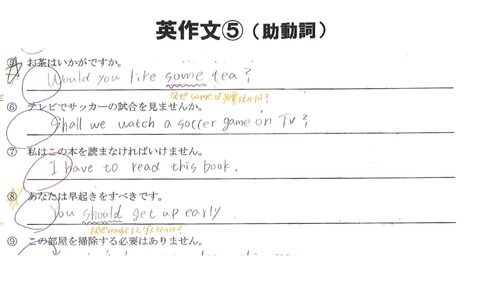 英作文⑤（助動詞）
⑤ お茶はいかがですか。
Would you like some tea?
なぜsomeが必要なのか?
⑥ テレビでサッカーの試合を見ませんか。
Shall we watch a soccer game on TV?
⑦ 私はこの本を読まなければいけません。
I have to read this book.
⑧ あなたは早起きをすべきです。
You should get up early.
なぜmustじゃダメなのか?
⑨ この部屋を掃除する必要はありません。